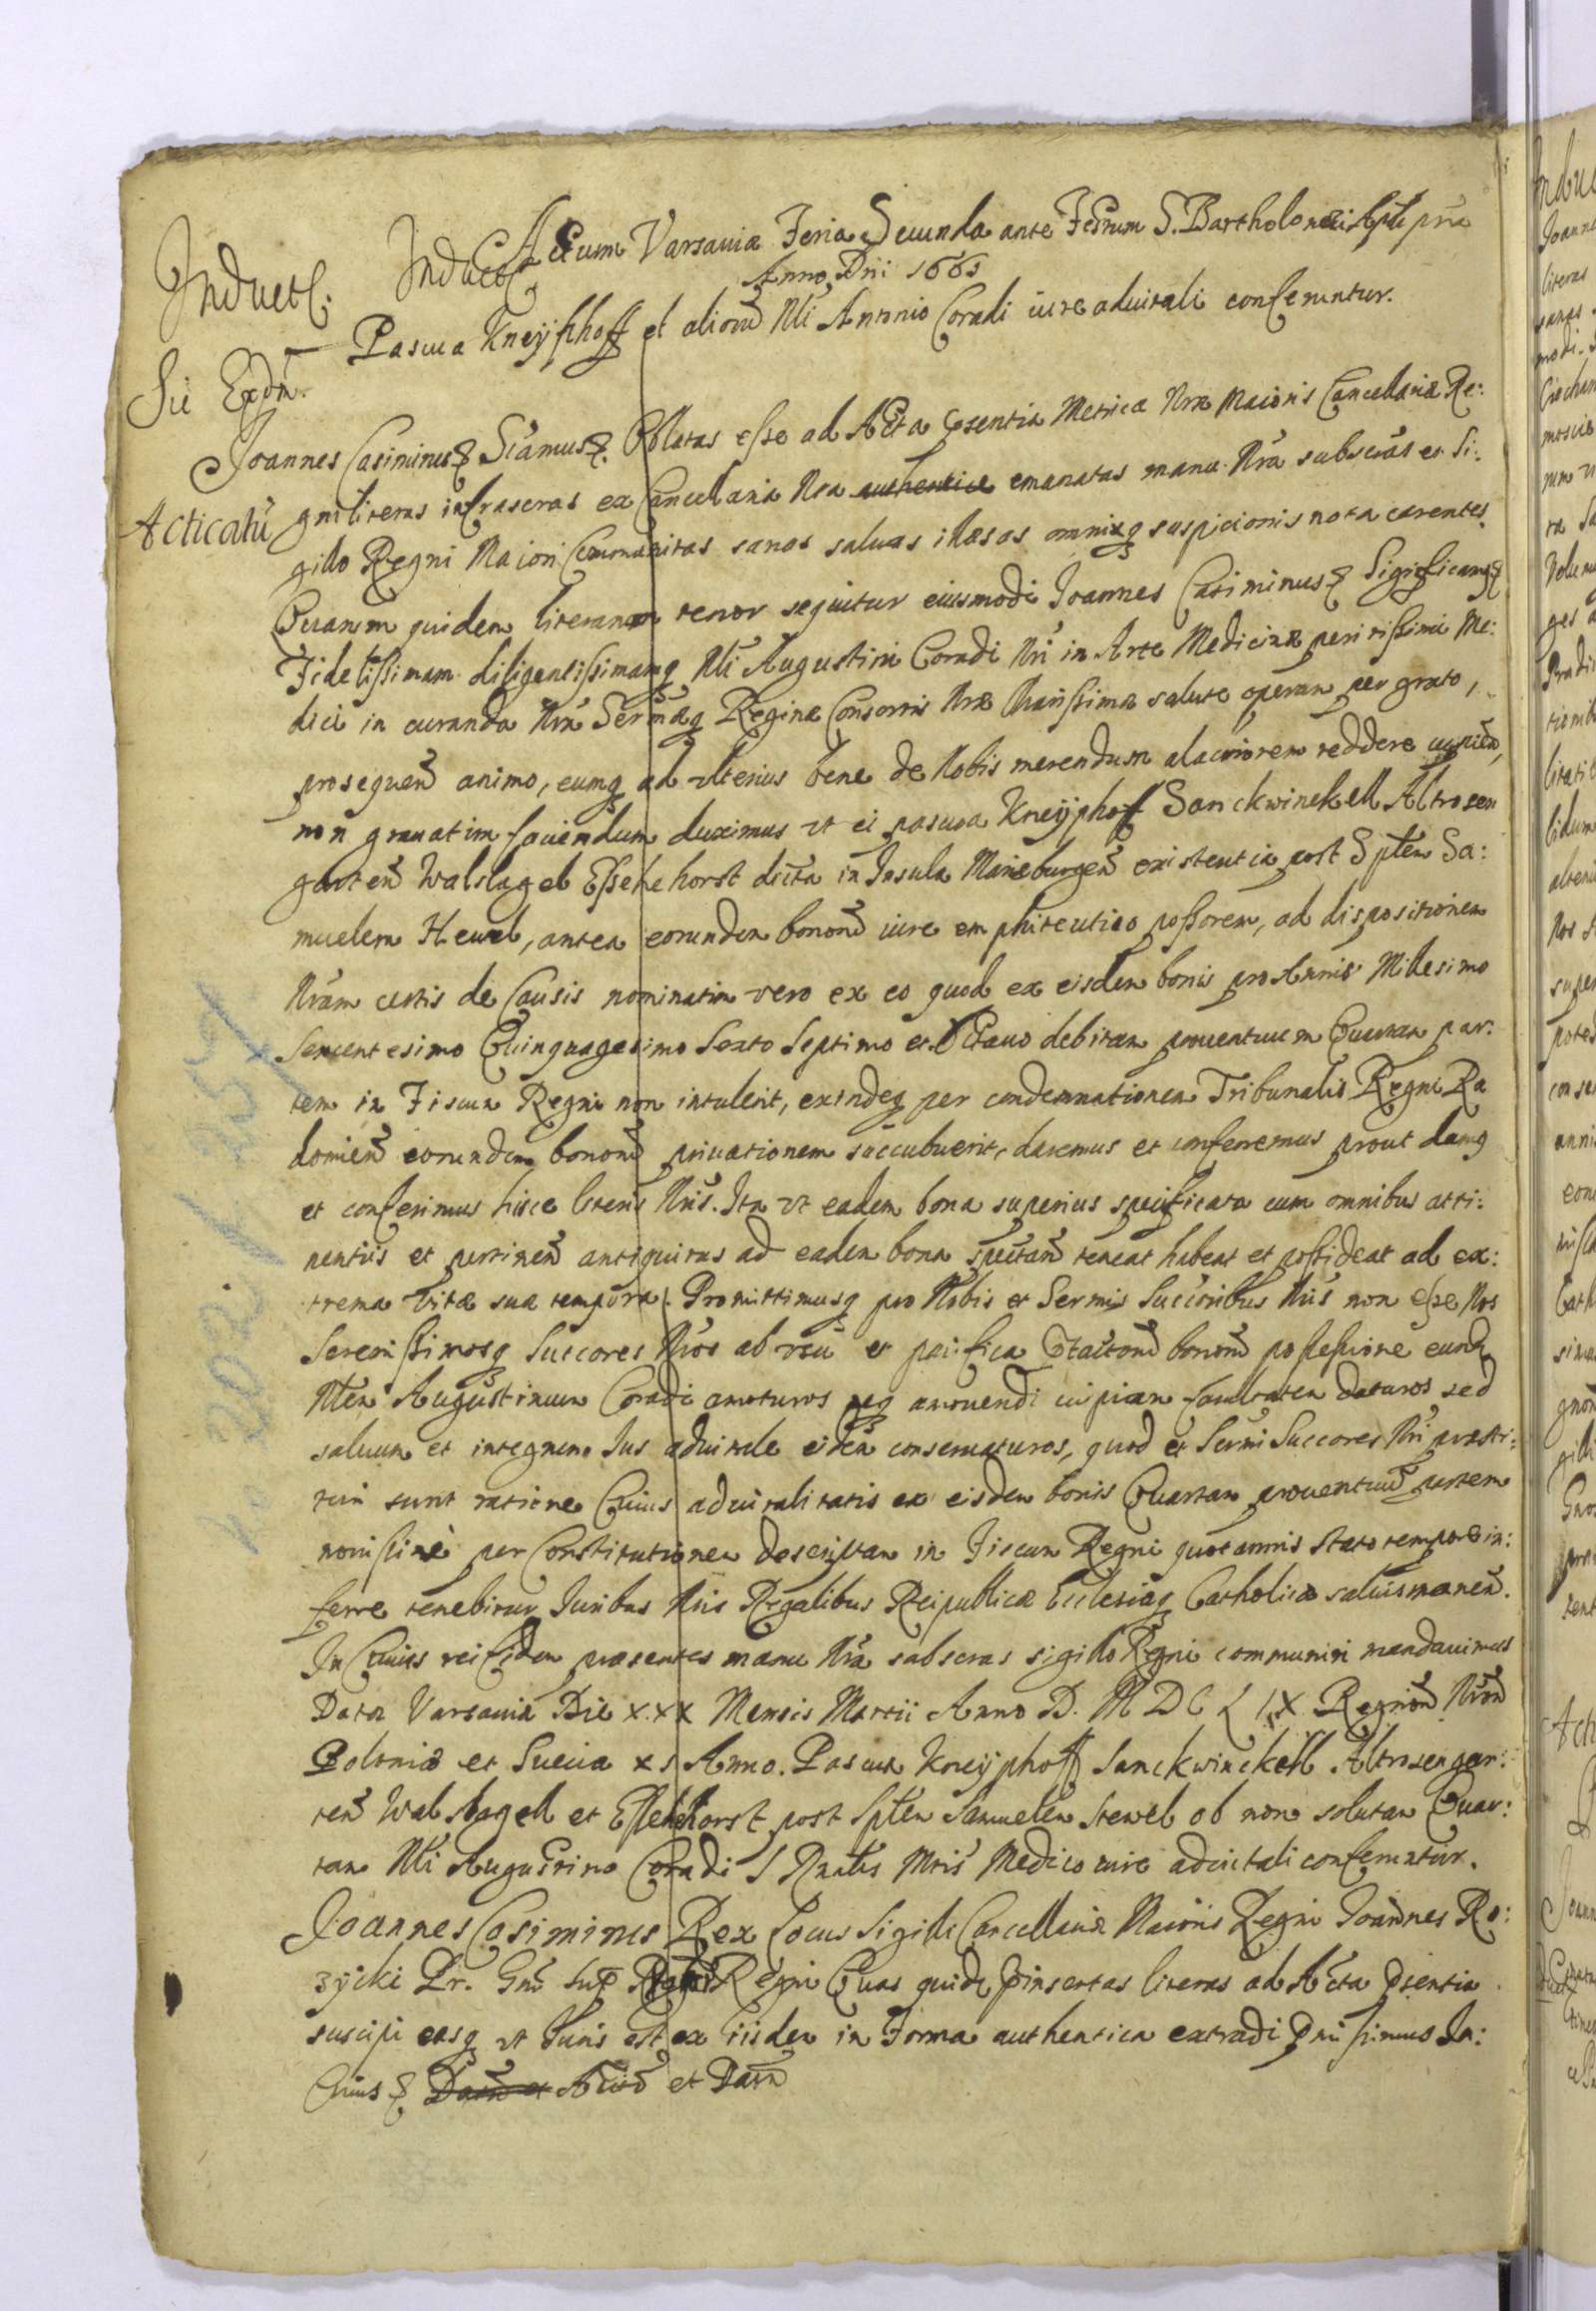 Inductſ.
Inductſ. Actum Varsaviæ Feria Secunda ante Festum S. Bartholomæi Apłi prox
Anno Dnī 1661
Pascua Kneyphhoff et aliorū Nłi Antonio Coradi iure aduitali conferuntur.
Sic Expdm.
Joannes Casimirus Sciamus Oblatas esse ad Acta Præsentia Metricæ Nræ Maioris Cancellariæ Re:
Acticatū
gni literas infrascras ex Cancellaria Nra authentice emanatas manu Nrā subscras et Si:
gillo Regni Maiori Communitas sanas saluas illæsas omniq suspicionis nota carentes.
Quarum quidem literarum tenor sequitur eiusmodi Joannes Casimirus Significamq
Fidelissimam diligentissimamq Nłi Augustini Coradi Nri in Arte Medicinæ peritissimi Me:
dici in curanda Nrā Sermæq Reginæ Consortis Nræ Charissimæ salute operam per grato,
prosequeñ animo, eumq ad ulterius bene de Nobis merendum alacriorem reddere cupieñ,
non grauatim faciendum duximus vt ei pascua Kneyphoff Sanckwinekell Altrosen
garteñ Walslagel Essehehorst dicta in Insula Marieburgeñ existentia post Spłem Sa:
muelem Hewel, antea eorundem bonorū iure emphiteutico possorem, ad dispositionem
Nram certis de Causis nominatim vero ex eo quod ex eisdem bonis pro Annis Millesimo
Sexcentesimo Quinquagesimo Sexto Septimo et Octauo debitam prouentuum Quartam par:
tem in Fiscum Regni non intulerit, exindeq per condemnationem Tribunalis Regni Ra
domieñ eorundem bonorū priuationem succubuerit, daremus et conferremus prout damq
et conferimus hisce literis Nris. Ita vt eadem bona superius specificata cum omnibus atti:
nentiis et pertineñ antiquitus ad eadem bona spectañ teneat habeat et possideat ad ex:
trema vitæ suæ tempora. Promittimusq pro Nobis et Sermis Succoribus Nris non esse Nos
Serenissimosq Succores Nros ab vsu et pacifica bonorū possessione eund
Nłem Augustinum Coradi amoturos neq amouendi cuipiam facultatem daturos sed
saluum et integrum Ius aduitale eidem conseruaturos, quod et Sermi Succores Nri præsti:
turi sunt ratione Cuius aduitalitatis ex eisdem bonis Quartam prouentuū partem
nouissimè per Constitutionem descriptam in Fiscum Regni quotannis stato tempore in:
ferre tenebitur Iuribus Nris Regalibus Reipublicæ Ecclesiæq Catholicæ saluis maneñ.
In Cuius rei fidem præsentes manu Nrā subscras sigillo Regni communiri mandauimus
Datæ Varsauiæ Die XXX Mensis Martii Anno D. M D C L I X Regnorū Nrorū
Poloniæ et Sueciæ XI Anno. Pascua Kneyphoff Sanckwinckell Altrosengar:
teñ Walslagell et Essehehorst post Spłem Samuelem Hewel ob non solutam Quar:
tam Nłi Augustino Coradi S Rgalis Mtis Medico iure aduitali conferuntur.
Joannes Casimirus Rex Locus Sigilli Cancellariæ Maioris Regni Joannes Ro:
zycki Pr. Gnł Regni Quas quidē pinsertas literas ad Acta Psentia
suscipi easq vt Iuris est ex iisdem in Forma authentica extradi Pmisimus In:
Cuius Datū et Actū et Datū